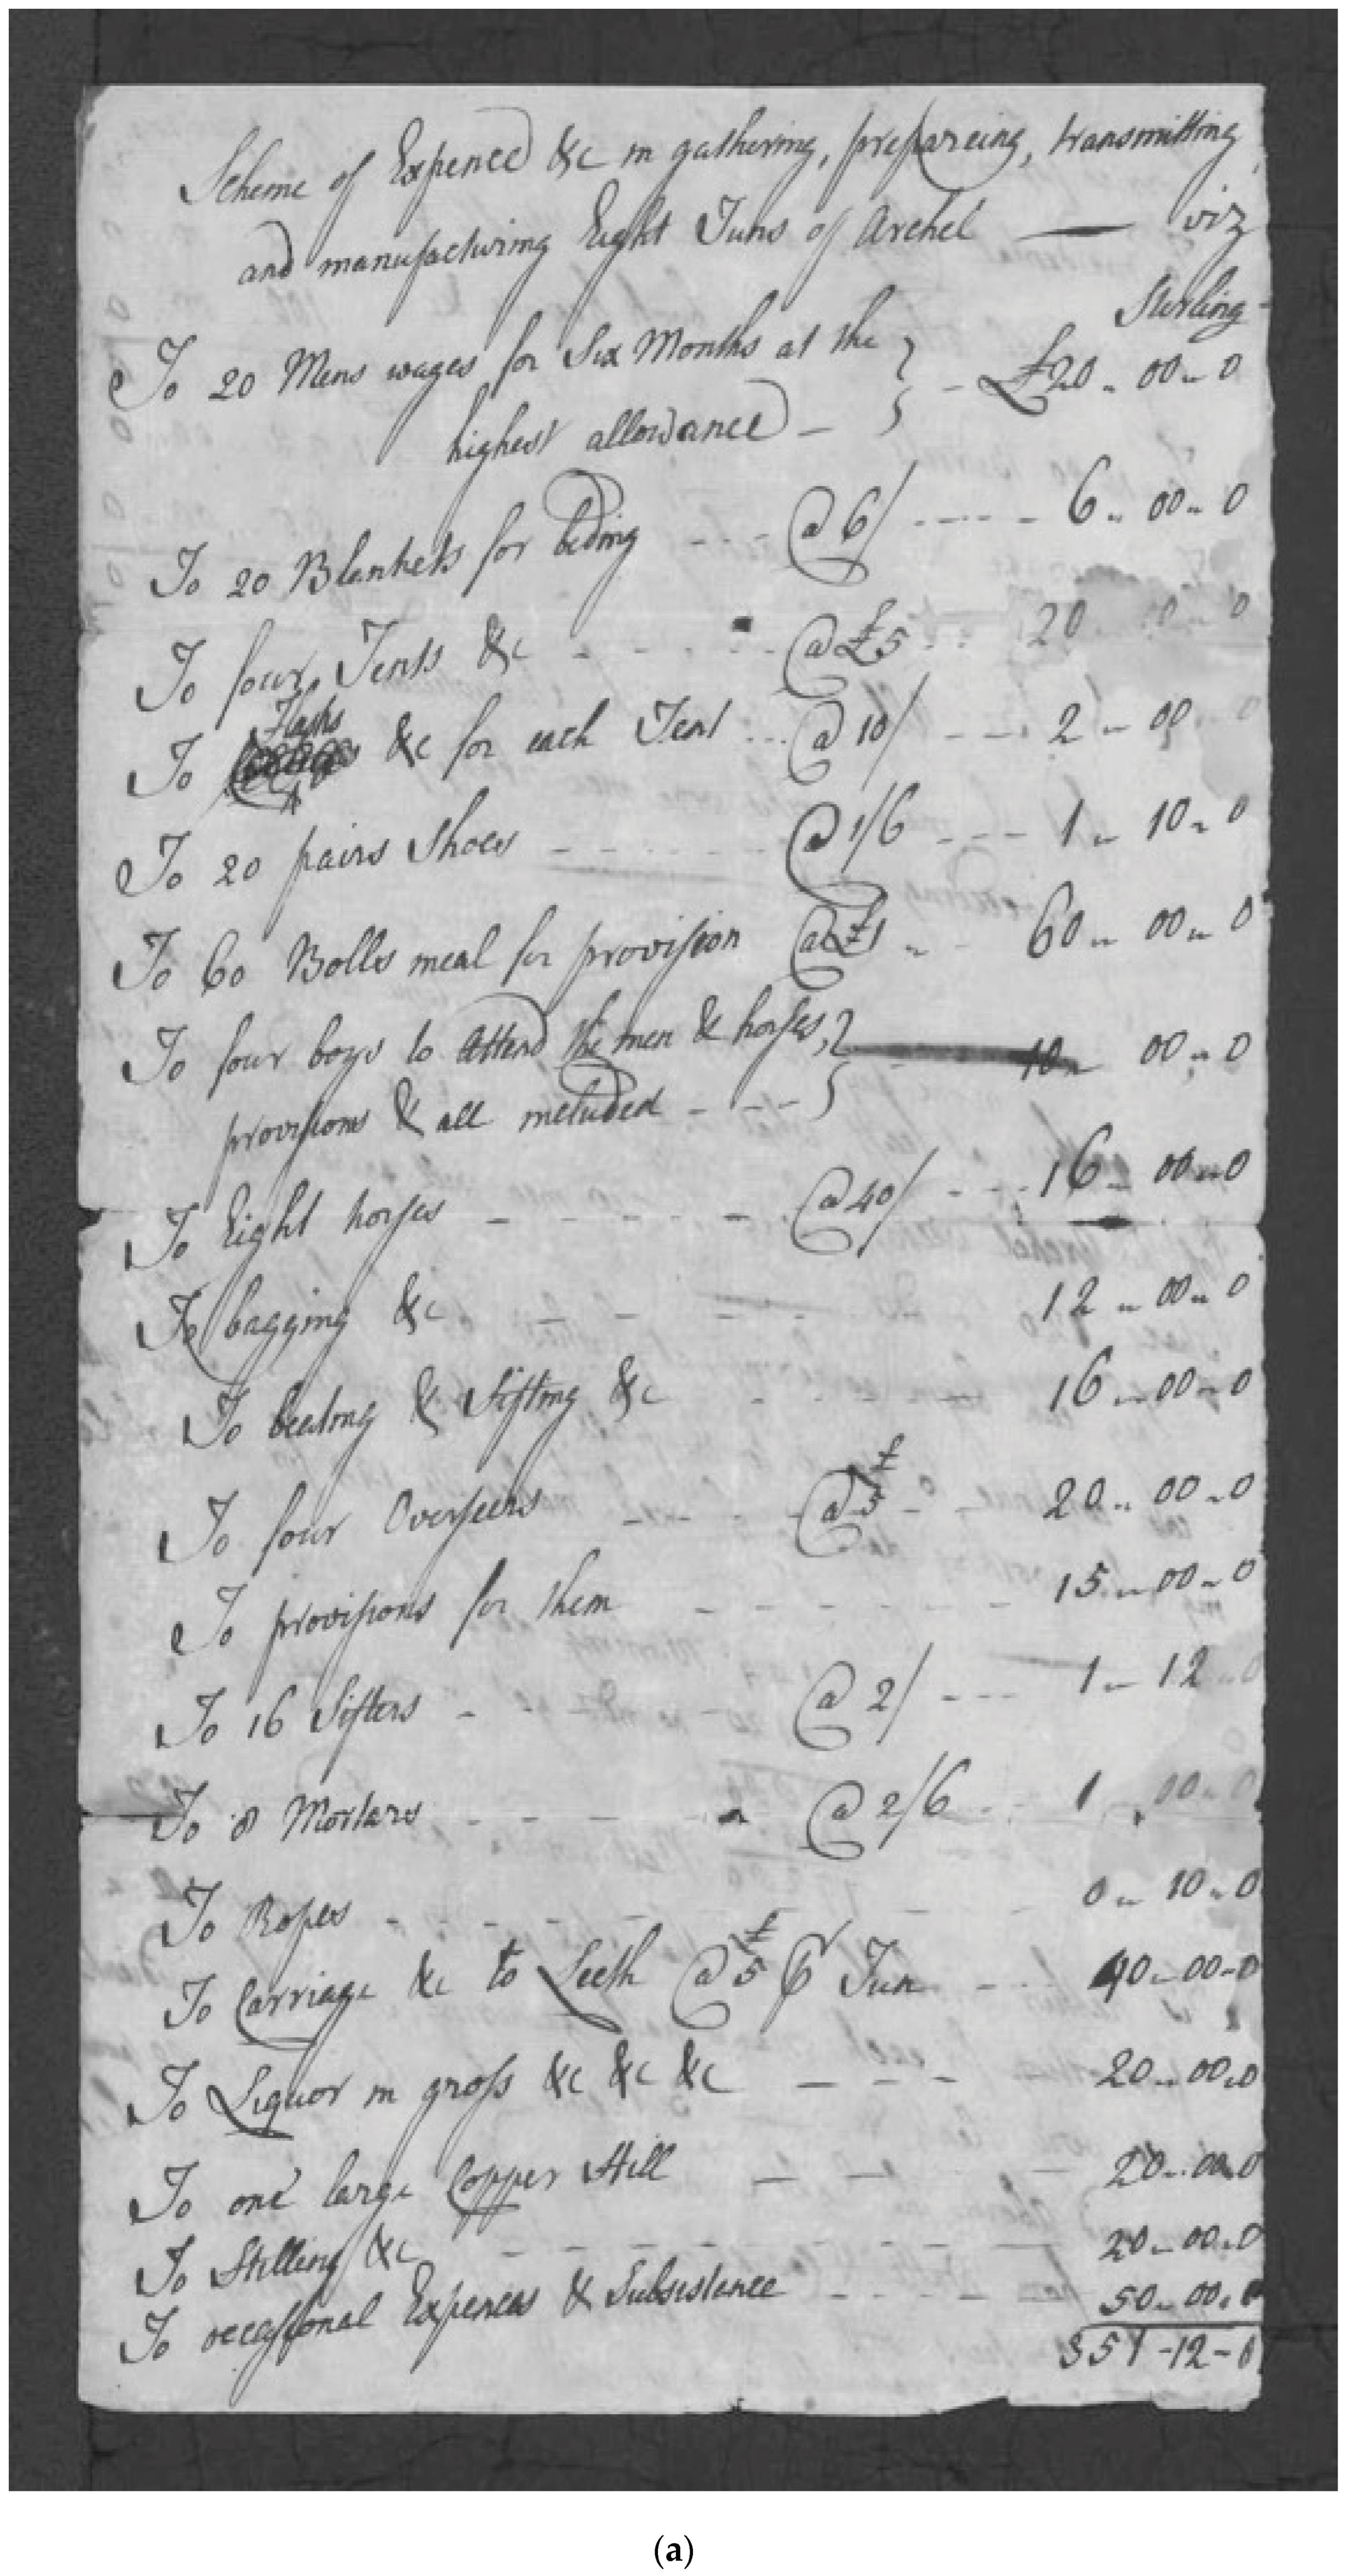 Scheme of Expence &c in gathering, prepareing, transmitting
and manufacturing Eight Tuns of Archel — viz
Sterling
To 20 Mens wages for Six Months at the } - £20 .. 00 .. 0
highest allowance -
To 20 Blankets for beding - - - @ 6/ - - - - - 6 .. 00 .. 0
To four Tents &c - - - - - @ £5 - - 20 .. 00 .. 0
To Flasks &c for each Tent - - - @ 10/ - - - 2 .. 00 .. 0
To 20 pairs Shoes - - - - - @ 1/6 - - - 1 .. 10 .. 0
To 60 Bolls meal for provision @ £1 .. - 60 .. 00 .. 0
To four boys to attend the men & horses, } - 10 .. 00 .. 0
provisions & all included - - - -
To Eight horses - - - - - @ 40/ - - - 16 .. 00 .. 0
To bagging &c - - - - - 12 .. 00 .. 0
To beating & Sifting &c - - - - 16 .. 00 .. 0
To four Overseers - - - - @ £5 - 20 .. 00 .. 0
To provisions for them - - - - - - 15 .. 00 .. 0
To 16 Sifters - - - - @ 2/ - - - 1 .. 12 .. 0
To 8 Mortars - - - - - @ 2/6 - - 1 .. 00 .. 0
To Ropes - - - - - - - 0 .. 10 .. 0
To Carriage &c to Leith @ £5 ⅌ Tun - - - 40 .. 00 .. 0
To Liquor in gross &c &c &c - - - - 20 .. 00 .. 0
To one large Copper Still - - - 20 .. 00 .. 0
To Stilling &c - - - - - - - - 20 .. 00 .. 0
To occassional Expences & Subsistance - - - - - 50 .. 00 .. 0
351 - 12 - 0
(a)